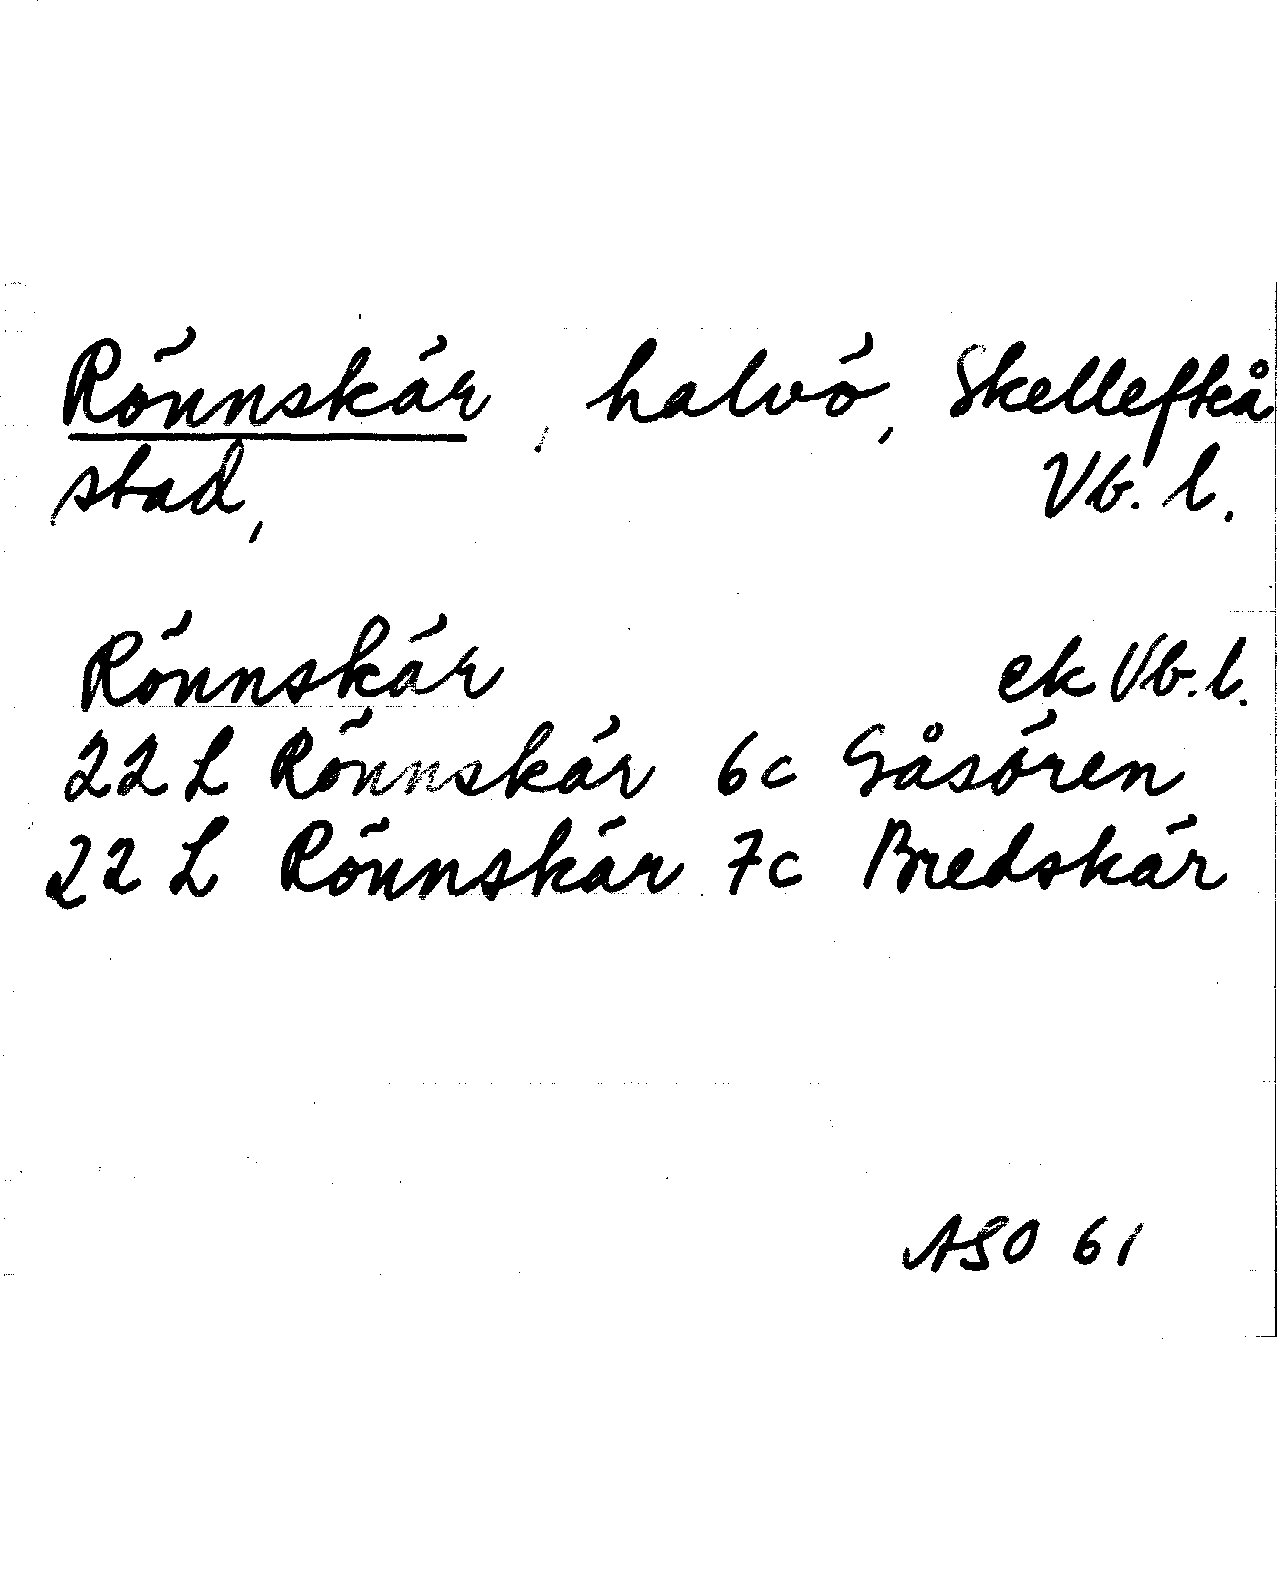 Rönnskär, halvö, Skellefteå
stad, Vb. l.
Rönnskär ek Vb. l.
22 L Rönnskär 6c Gåsören
22 L Rönnskär 7c Bredskär
ASO 61